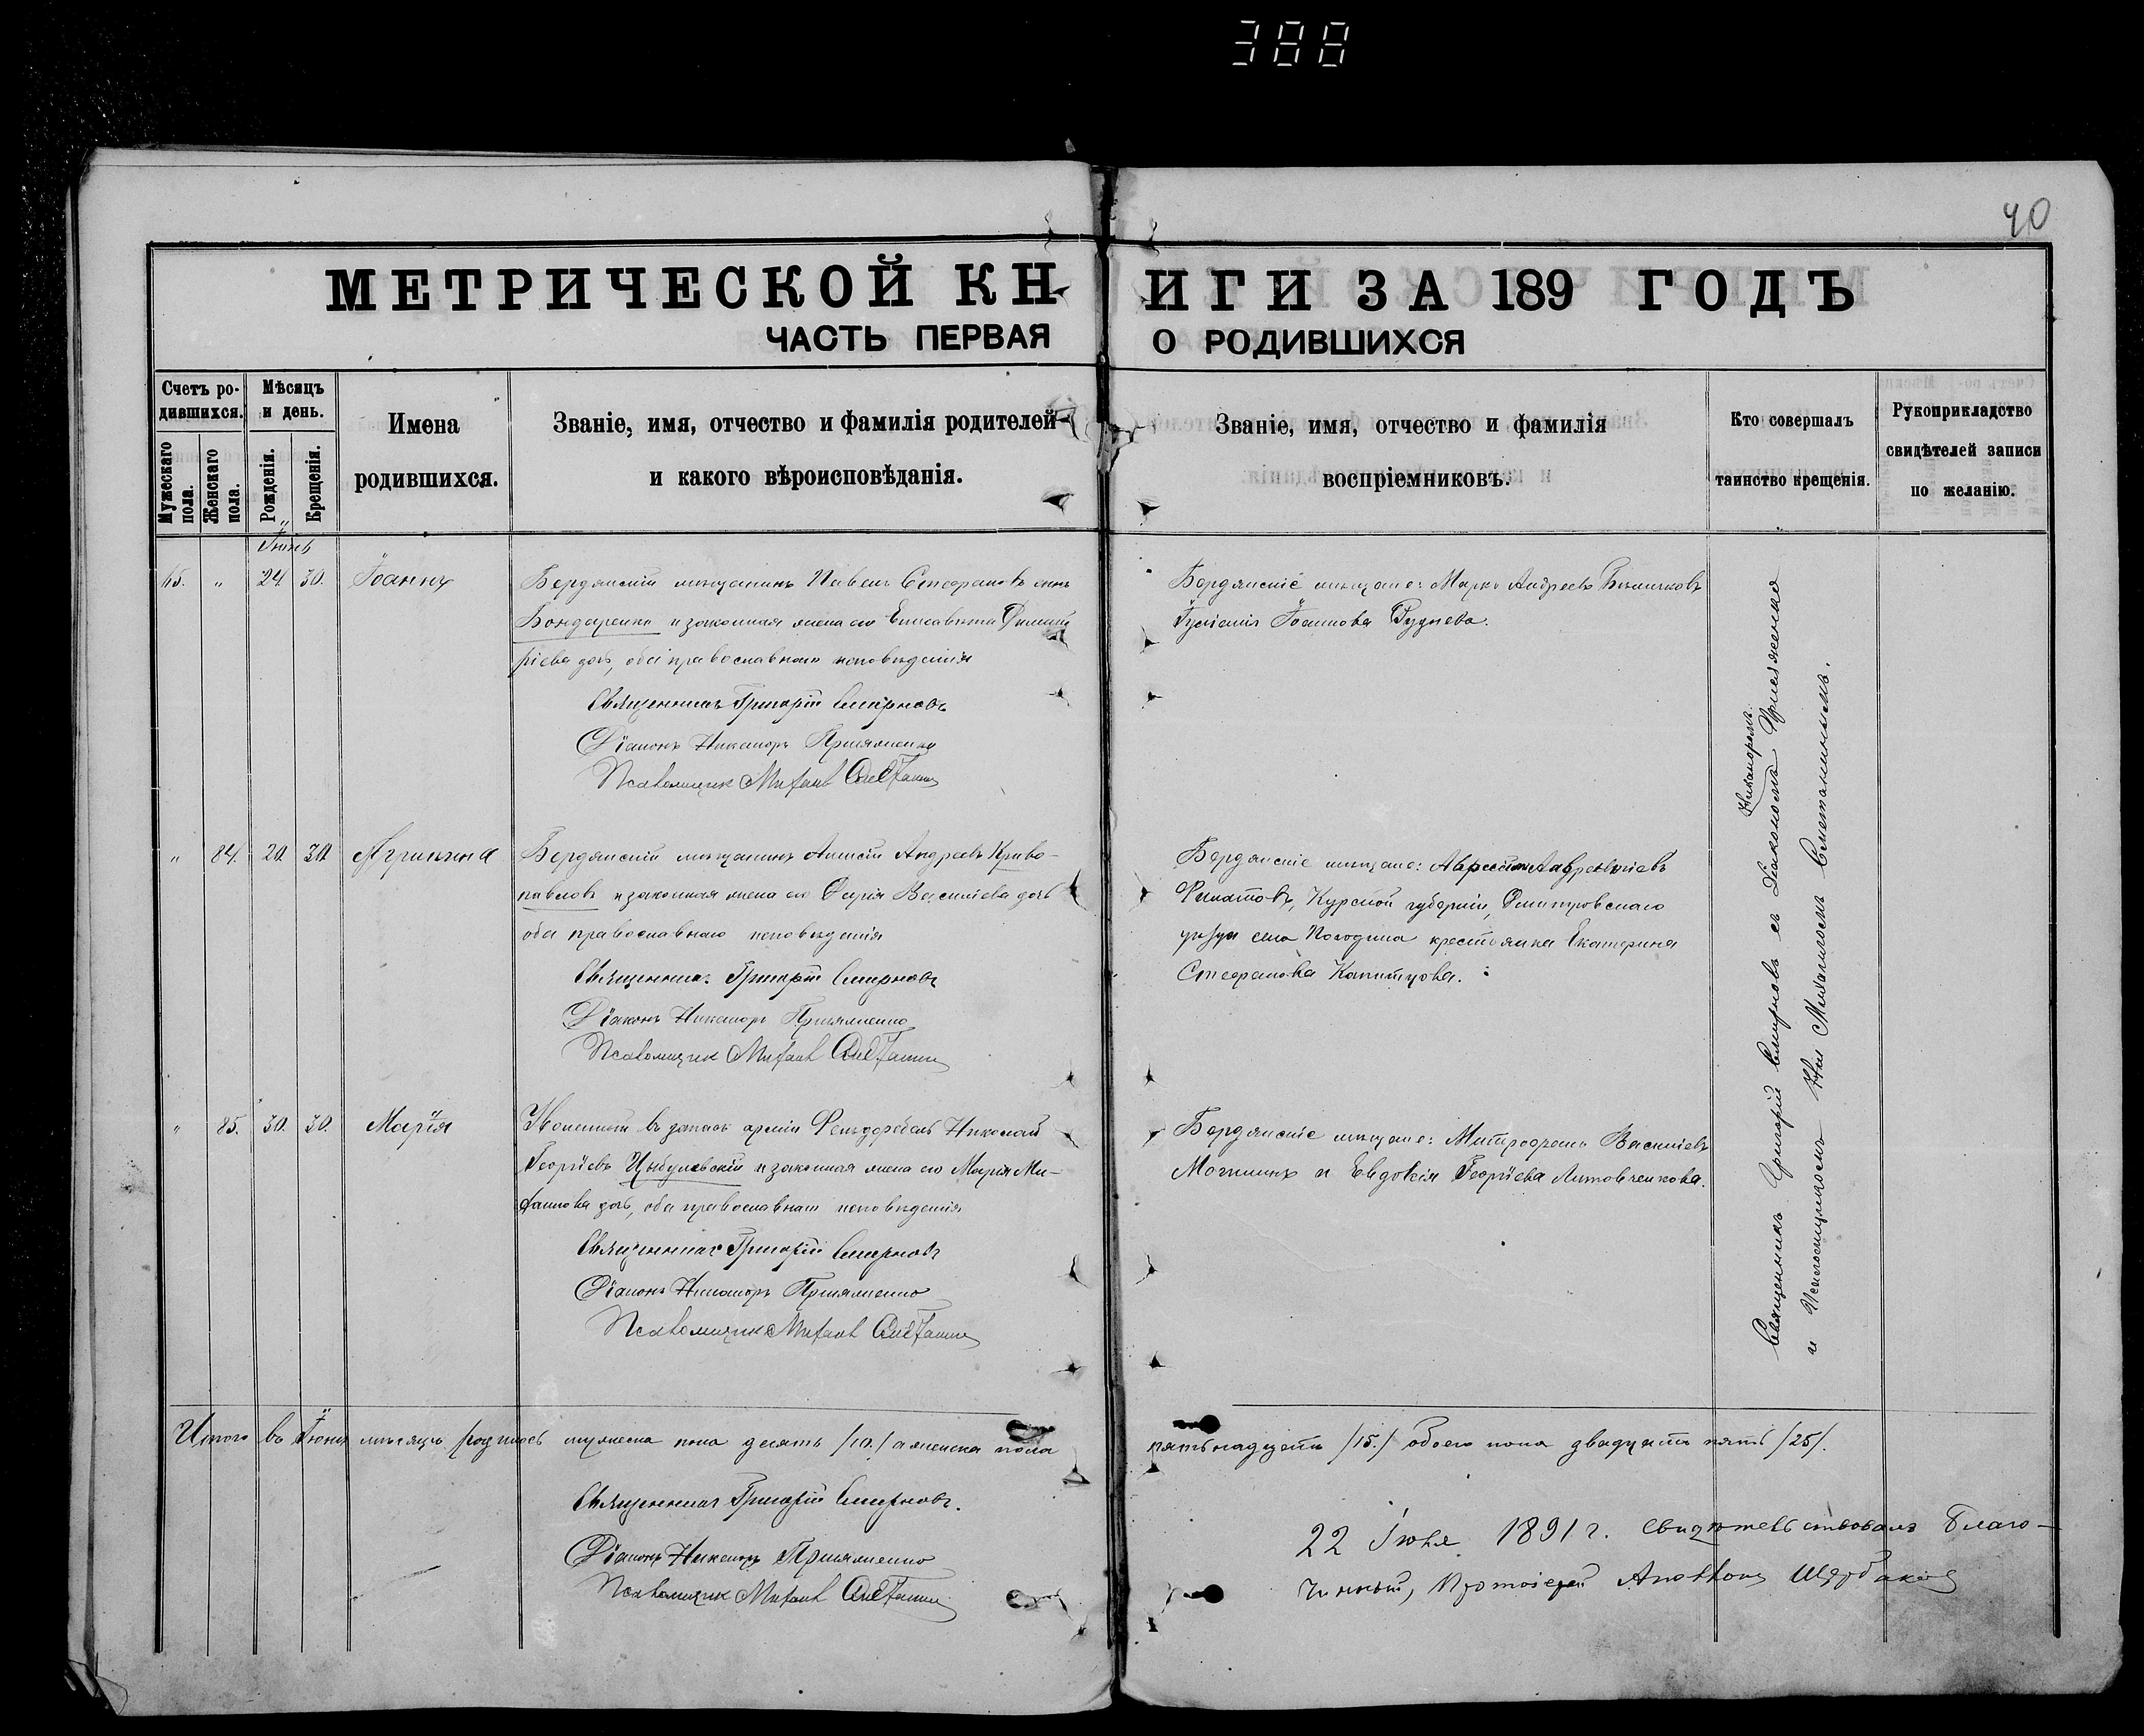 388
40
МЕТРИЧЕСКОЙ КНИГИ ЗА 189 ГОДЪ
ЧАСТЬ ПЕРВАЯ О РОДИВШИХСЯ
Счетъ ро-
дившихся.
Мужескаго
пола.
Женскаго
пола.
Мѣсяцъ
и день.
Рожденія.
Крещенія.
Имена
родившихся.
Званіе, имя, отчество и фамилія родителей
и какого вѣроисповѣданія.
Званіе, имя, отчество и фамилія
воспріемниковъ.
Кто совершалъ
таинство крещенія.
Рукоприкладство
свидѣтелей записи
по желанію.
Іюнь
65. „ 24. 30. Іоаннъ
Бердянскій мѣщанинъ Павелъ Стефановъ сынъ
Бондаренко и законная жена его Елисавета Димит
ріева дочь, оба православнаго исповѣданія
Священникъ Григорій Смирновъ
Діаконъ Никаноръ Прихоженко
Псаломщикъ Михаилъ Сметанинъ
Бердянскіе мѣщане: Марко Андреевъ
Іоаннова Руднева.
„ 84. 20. 30. Агрипина
Бердянскій мѣщанинъ Алексій Андреевъ Криво-
павловъ и законная жена его Дарія Василіева дочь
оба православнаго исповѣданія
Священникъ Григорій Смирновъ
Діаконъ Никаноръ
Псаломщикъ Михаилъ Сметанинъ
Бердянскіе мѣщане: Лаврентіевъ
Филатовъ, Курской губерніи, Дмитровскаго
уѣзда села Погодина крестьянка Екатерина
Стефанова Капитцова.
„ 85. 30. 30. Марія
Уволенный въ запасъ арміи Фельдфебель Николай
Георгіевъ Цыбулевскій и законная жена его Марія Ми-
хаилова дочь, оба православнаго исповѣданія
Священникъ Григорій Смирновъ
Діаконъ Никаноръ
Псаломщикъ Михаилъ Сметанинъ
Бердянскіе мѣщане: Митрофанъ Василіевъ
и Евдокія Георгіева Литовченкова.
Священникъ Григорій Смирновъ съ Діакономъ Никаноромъ
и Псаломщикомъ Михаиломъ Сметанинымъ.
Итого въ Іюнѣ мѣсяцѣ родилось мужеска пола десять /10./ а женска пола пятьнадцать /15./ обоего пола двадцать пять /25/.
Священникъ Григорій Смирновъ.
Діаконъ Никаноръ
Псаломщикъ Михаилъ Сметанинъ
22 Іюля 1891 г. свидѣтельствовалъ Благо-
чинный, Протоіерей Щербаковъ